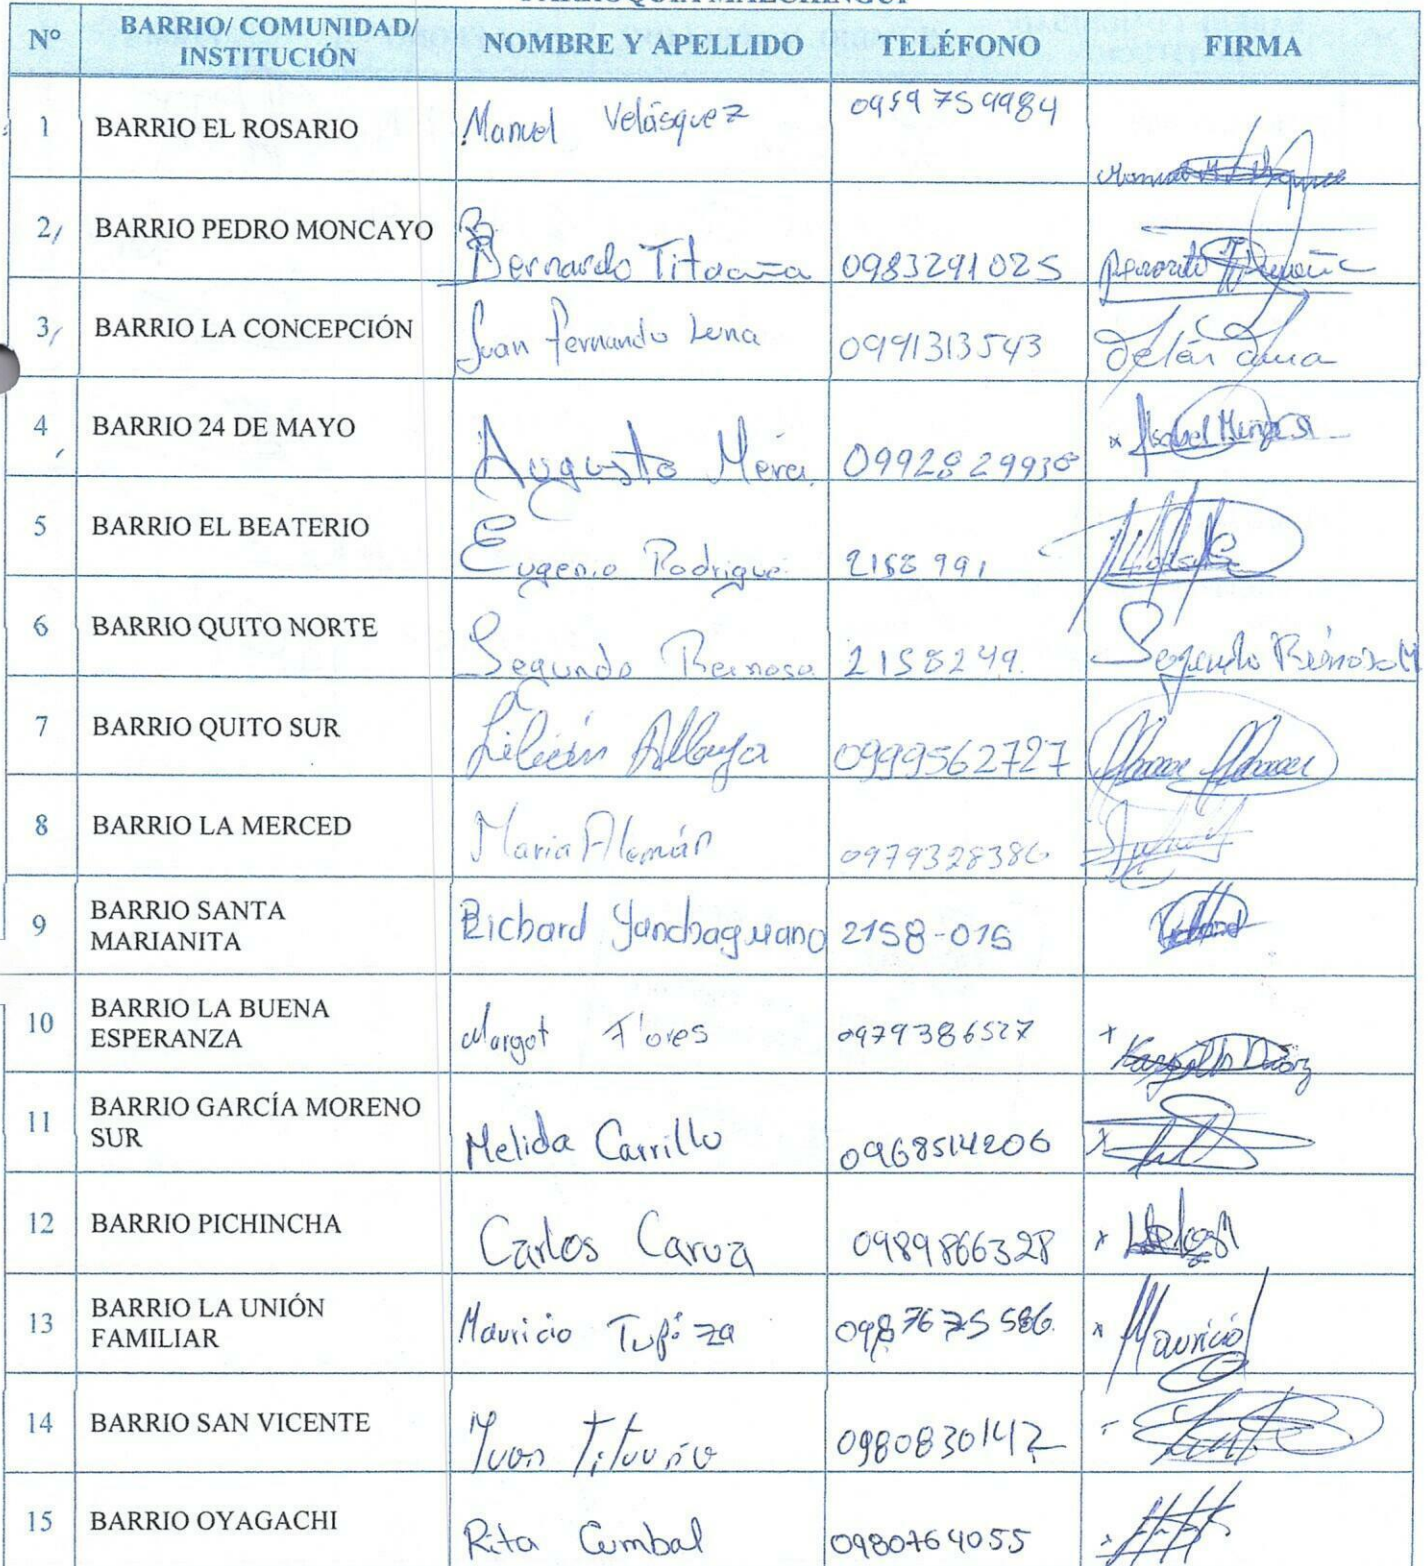 PARROQUIA MALCHINGUÍ
N° BARRIO/ COMUNIDAD/ INSTITUCIÓN NOMBRE Y APELLIDO TELÉFONO FIRMA
1 BARRIO EL ROSARIO Manuel Velásquez 0959759984
2 BARRIO PEDRO MONCAYO Bernardo Tituaña 0983291025
3 BARRIO LA CONCEPCIÓN Juan Fernando Luna 0991313543
4 BARRIO 24 DE MAYO Augusto Mera 0992829938
5 BARRIO EL BEATERIO Eugenio Rodrigue 2158991
6 BARRIO QUITO NORTE Segundo Reinoso 2158249. Segundo Reinoso M
7 BARRIO QUITO SUR Lilián 0999562727
8 BARRIO LA MERCED Maria Alemán 0979328386
9 BARRIO SANTA
MARIANITA Richard Yanchaguano 2158-015
10 BARRIO LA BUENA
ESPERANZA Margot Flores 0979386527
11 BARRIO GARCÍA MORENO
SUR Melida Carrillo 0968514206
12 BARRIO PICHINCHA Carlos Carua 0989866328
13 BARRIO LA UNIÓN
FAMILIAR Mauricio Tupiza 0987675586 Mauricio
14 BARRIO SAN VICENTE 0980830142
15 BARRIO OYAGACHI Rita Cumbal 0980764055